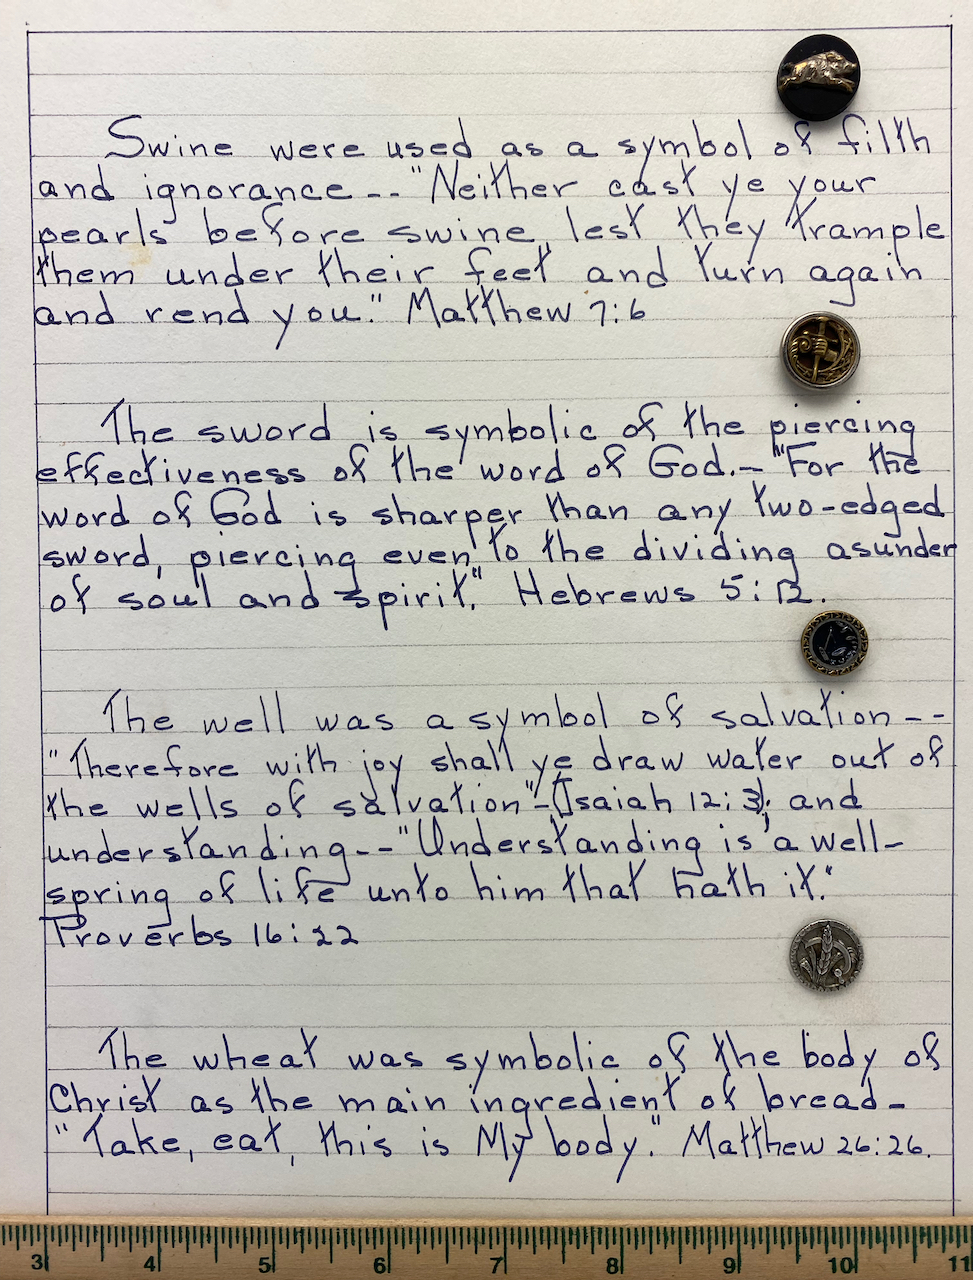 Swine were used as a symbol of filth
and ignorance-- "Neither cast ye your
pearls before swine, lest they trample
them under their feet and turn again
and rend you." Matthew 7:6
The sword is symbolic of the piercing
effectiveness of the word of God.- "For the
word of God is sharper than any two-edged
sword, piercing even to the dividing asunder
of soul and spirit." Hebrews 5:12.
The well was a symbol of salvation--
"Therefore with joy shall ye draw water out of
the wells of salvation"-(Isaiah 12:3); and
understanding-- "Understanding is a well-
spring of life unto him that hath it."
Proverbs 16:22
The wheat was symbolic of the body of
Christ as the main ingredient of bread-
"Take, eat, this is My body." Matthew 26:26.
3 4 5 6 7 8 9 10 11